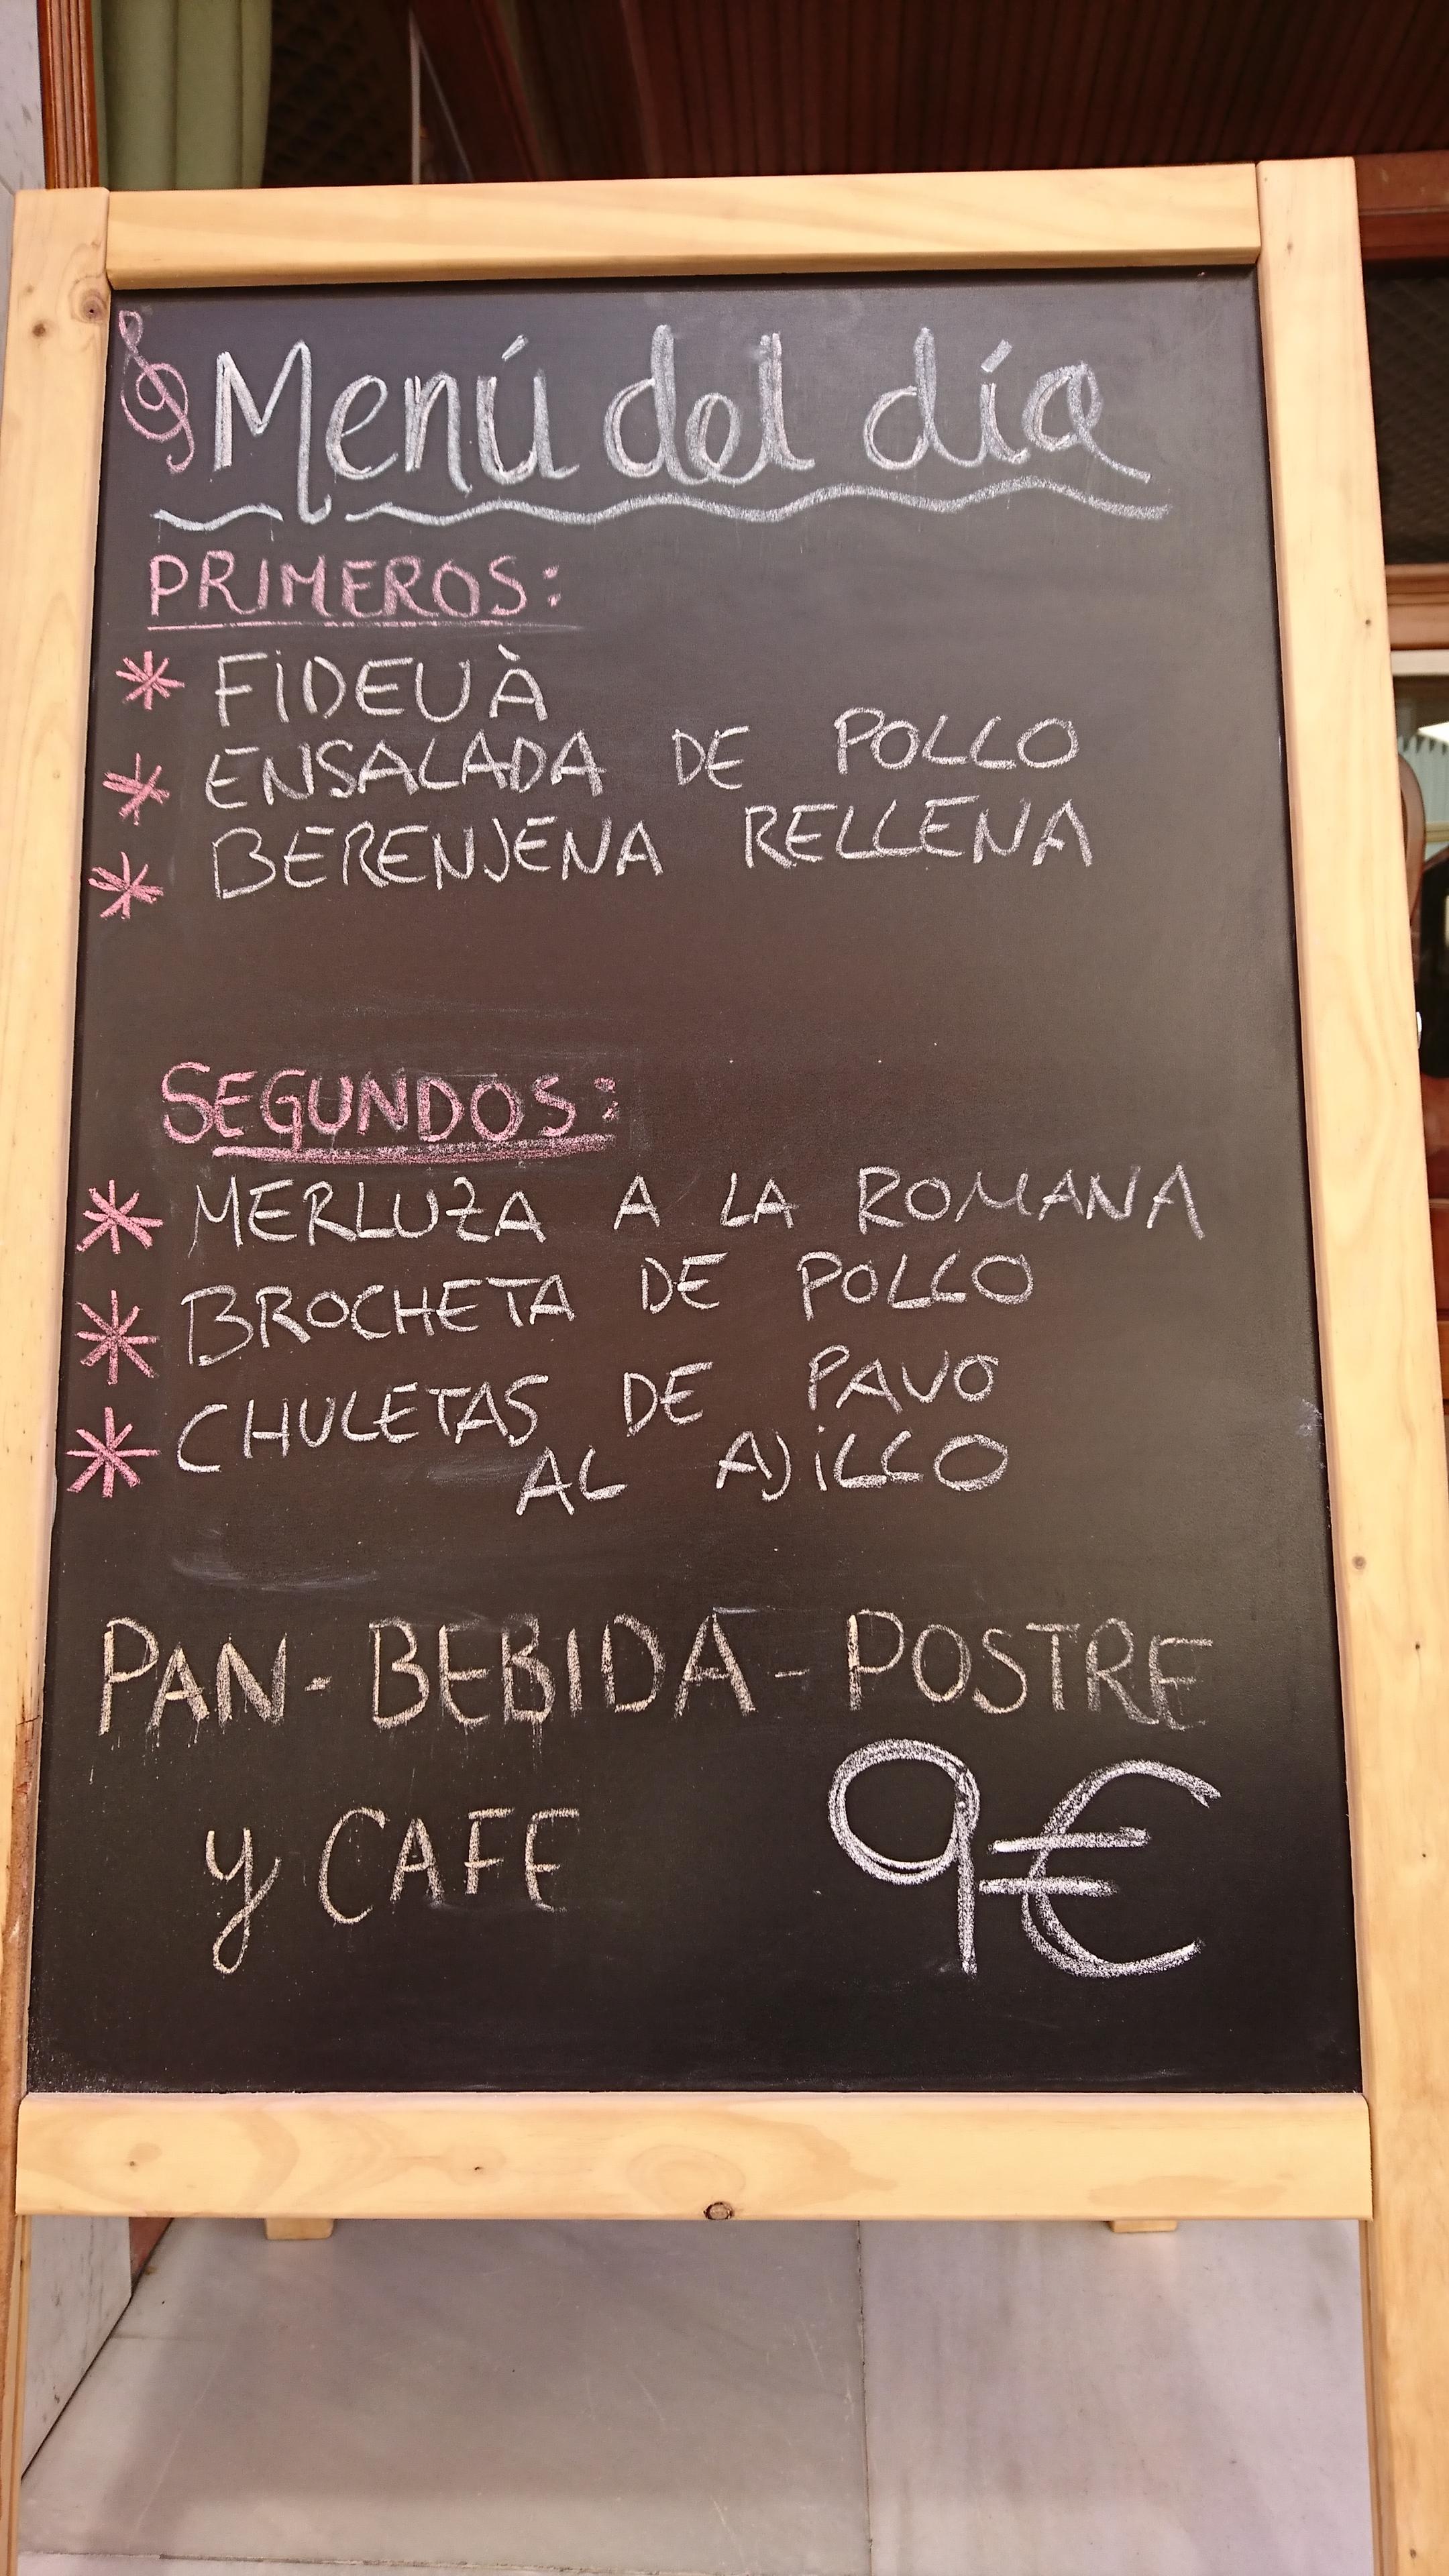 Menú del día
PRIMEROS:
* FIDEUÀ
* ENSALADA DE POLLO
* BERENJENA RELLENA
SEGUNDOS:
* MERLUZA A LA ROMANA
* BROCHETA DE POLLO
* CHULETAS DE PAVO
AL AJILLO
PAN - BEBIDA - POSTRE
y CAFE 9€